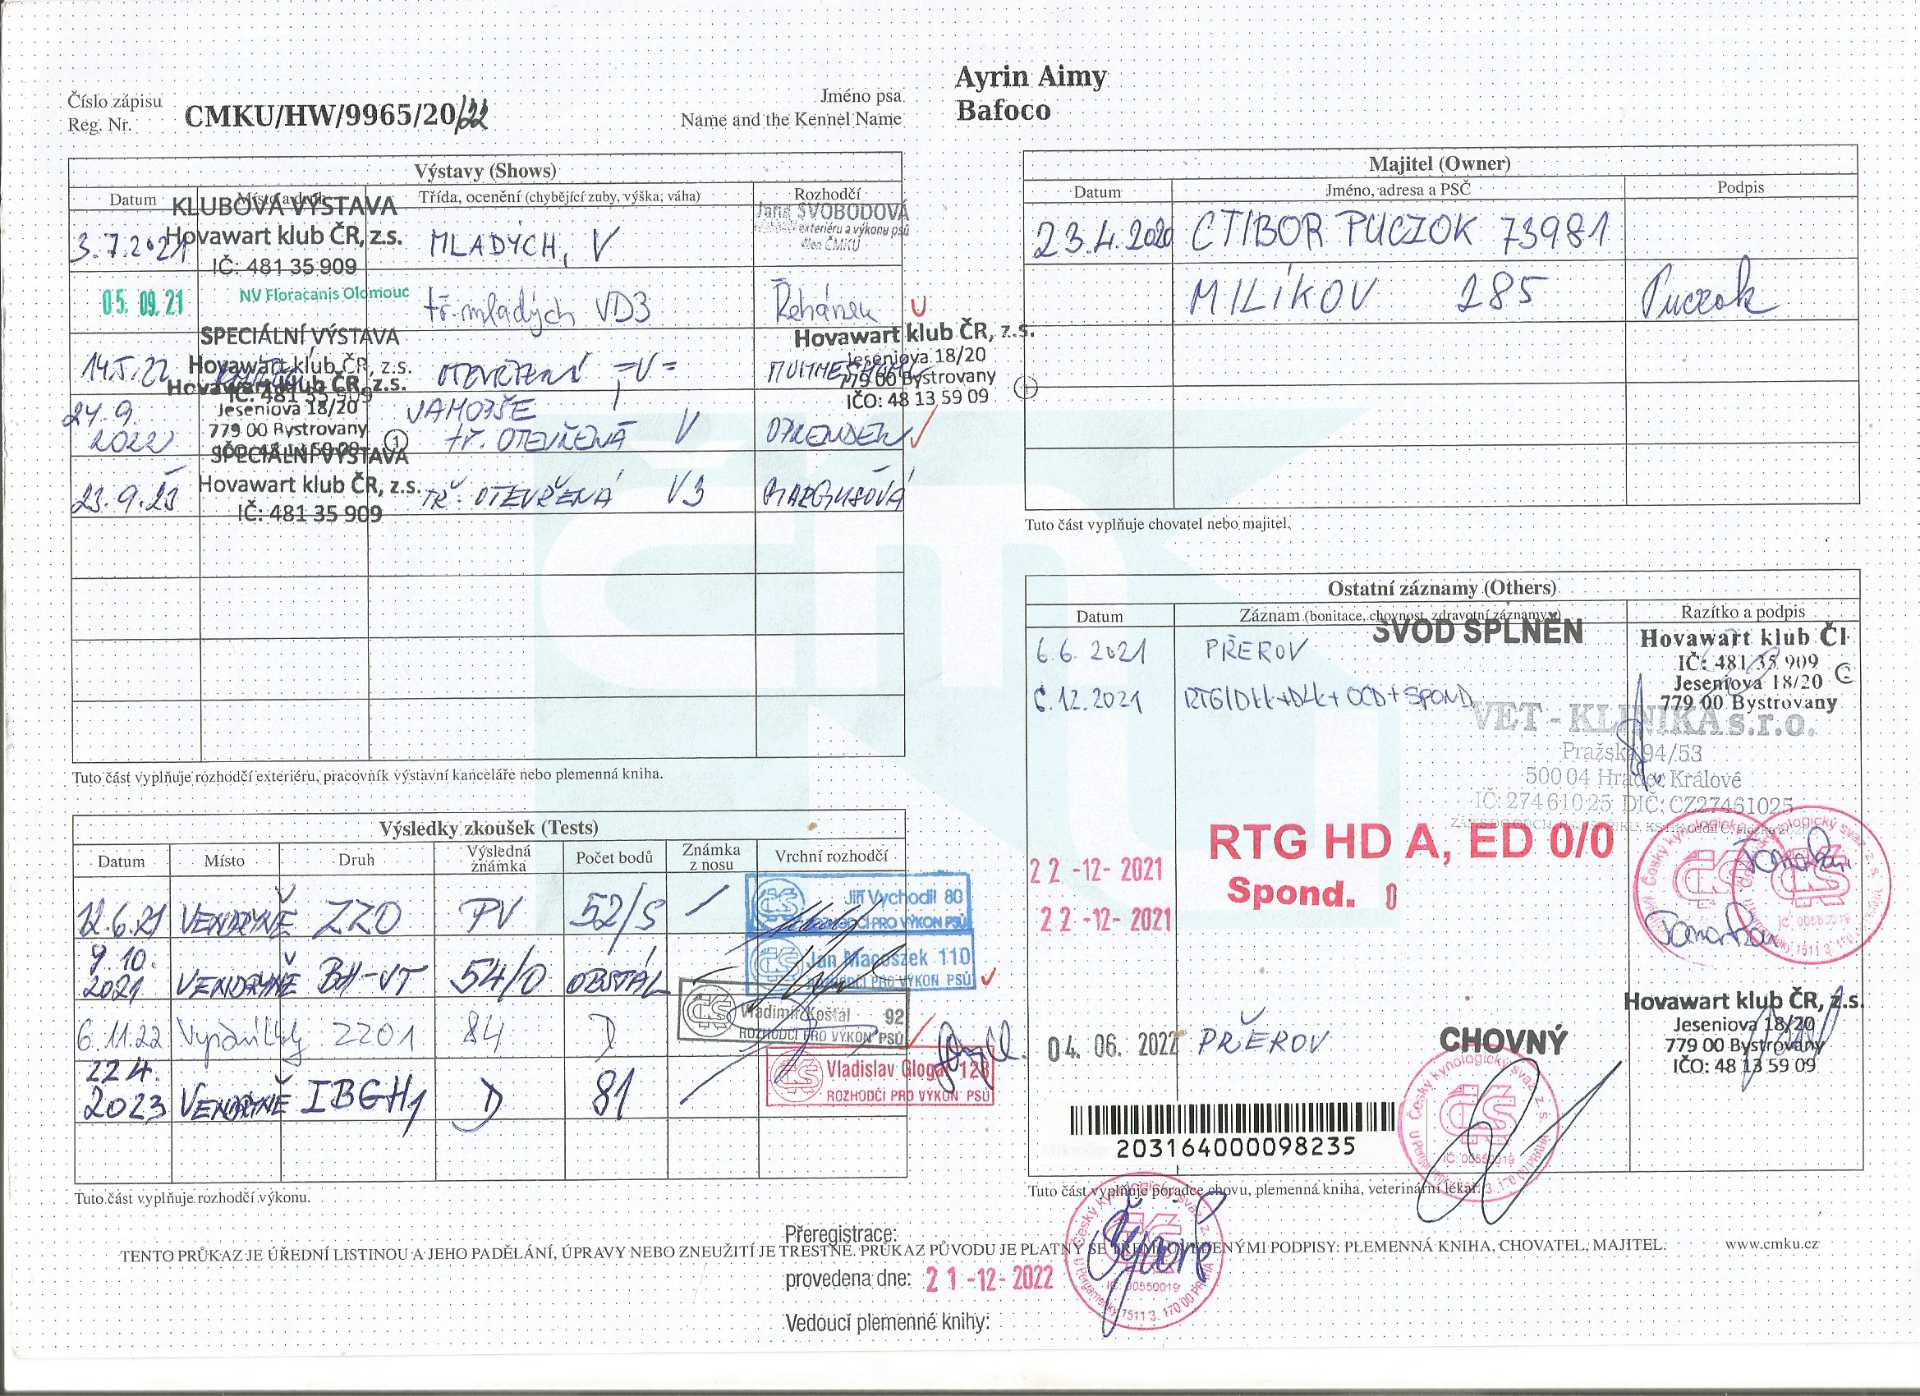 Číslo zápisu
Reg. Nr.
CMKU/HW/9965/20/22
Jméno psa
Name and the Kennel Name
Ayrin Aimy
Bafoco
Výstavy (Shows)
Datum
Třída, ocenění (chybějící zuby, výška, váha)
Rozhodčí
3.7.2021
KLUBOVÁ VÝSTAVA
Hovawart klub ČR, z.s.
IČ: 481 35 909
MLADÝCH, V
Jana SVOBODOVÁ
exteriéru a výkonu psů
člen ČMKÚ
05. 09. 21
NV Floracanis Olomouc
tř. mladých VD3
Řehánek
14.5.22
SPECIÁLNÍ VÝSTAVA
Hovawart klub ČR, z.s.
IČ: 481 35 909
OTEVŘENÁ =V=
24.9.
2022
Hovawart klub ČR, z.s.
Jeseniova 18/20
779 00 Bystrovany
IČO: 48 13 59 09
1
tř. OTEVŘENÁ V
Hovawart klub ČR, z.s.
Jeseniova 18/20
779 00 Bystrovany
IČO: 48 13 59 09
1
23.9.23
SPECIÁLNÍ VÝSTAVA
Hovawart klub ČR, z.s.
IČ: 481 35 909
TŘ. OTEVŘENÁ V3
Tuto část vyplňuje rozhodčí exteriéru, pracovník výstavní kanceláře nebo plemenná kniha.
Majitel (Owner)
Datum
Jméno, adresa a PSČ
Podpis
23.4.2020
CTIBOR PUCZOK 73981
MILÍKOV 285
Puczok
Tuto část vyplňuje chovatel nebo majitel.
Výsledky zkoušek (Tests)
Datum
Místo
Druh
Výsledná
známka
Počet bodů
Známka
z nosu
Vrchní rozhodčí
12.6.21 VENDRYNĚ ZZO PV 52/5 /
Jiří Vychodil 80
ROZHODČÍ PRO VÝKON PSŮ
9.10.
2021 VENDRYNĚ BH-VT 54/0 OBSTÁL
Jan Macoszek 110
ROZHODČÍ PRO VÝKON PSŮ
6.11.22 ZZO1 84 D
Vladimír Košťál 92
ROZHODČÍ PRO VÝKON PSŮ
22.4.
2023 VENDRYNĚ IBGH1 D 81 /
Vladislav Glogar 128
ROZHODČÍ PRO VÝKON PSŮ
Tuto část vyplňuje rozhodčí výkonu.
Ostatní záznamy (Others)
Datum
Záznam (bonitace, chovnost, zdravotní záznamy)
Razítko a podpis
SVOD SPLNĚN
6.6.2021 PŘEROV
Hovawart klub ČR
IČ: 481 35 909
Jeseniova 18/20
779 00 Bystrovany
6.12.2021 RTG/DKK+DLK+OCD+SPOND
VET - KLINIKA s.r.o.
Pražská 94/53
500 04 Hradec Králové
IČ: 274 610 25 DIČ: CZ27461025
22 -12- 2021
RTG HD A, ED 0/0
22 -12- 2021
Spond. 0
04. 06. 2022 PŘEROV
CHOVNÝ
Hovawart klub ČR, z.s.
Jeseniova 18/20
779 00 Bystrovany
IČO: 48 13 59 09
203164000098235
Český kynologický svaz z. s.
U Pergamenky 1511/3, 170 00 PRAHA
IČ: 00550019
Tuto část vyplňuje poradce chovu, plemenná kniha, veterinární lékař.
Přeregistrace:
TENTO PRŮKAZ JE ÚŘEDNÍ LISTINOU A JEHO PADĚLÁNÍ, ÚPRAVY NEBO ZNEUŽITÍ JE TRESTNÉ. PRŮKAZ PŮVODU JE PLATNÝ SE TŘEMI UVEDENÝMI PODPISY: PLEMENNÁ KNIHA, CHOVATEL, MAJITEL.
www.cmku.cz
provedena dne: 21 -12- 2022
Vedoucí plemenné knihy: